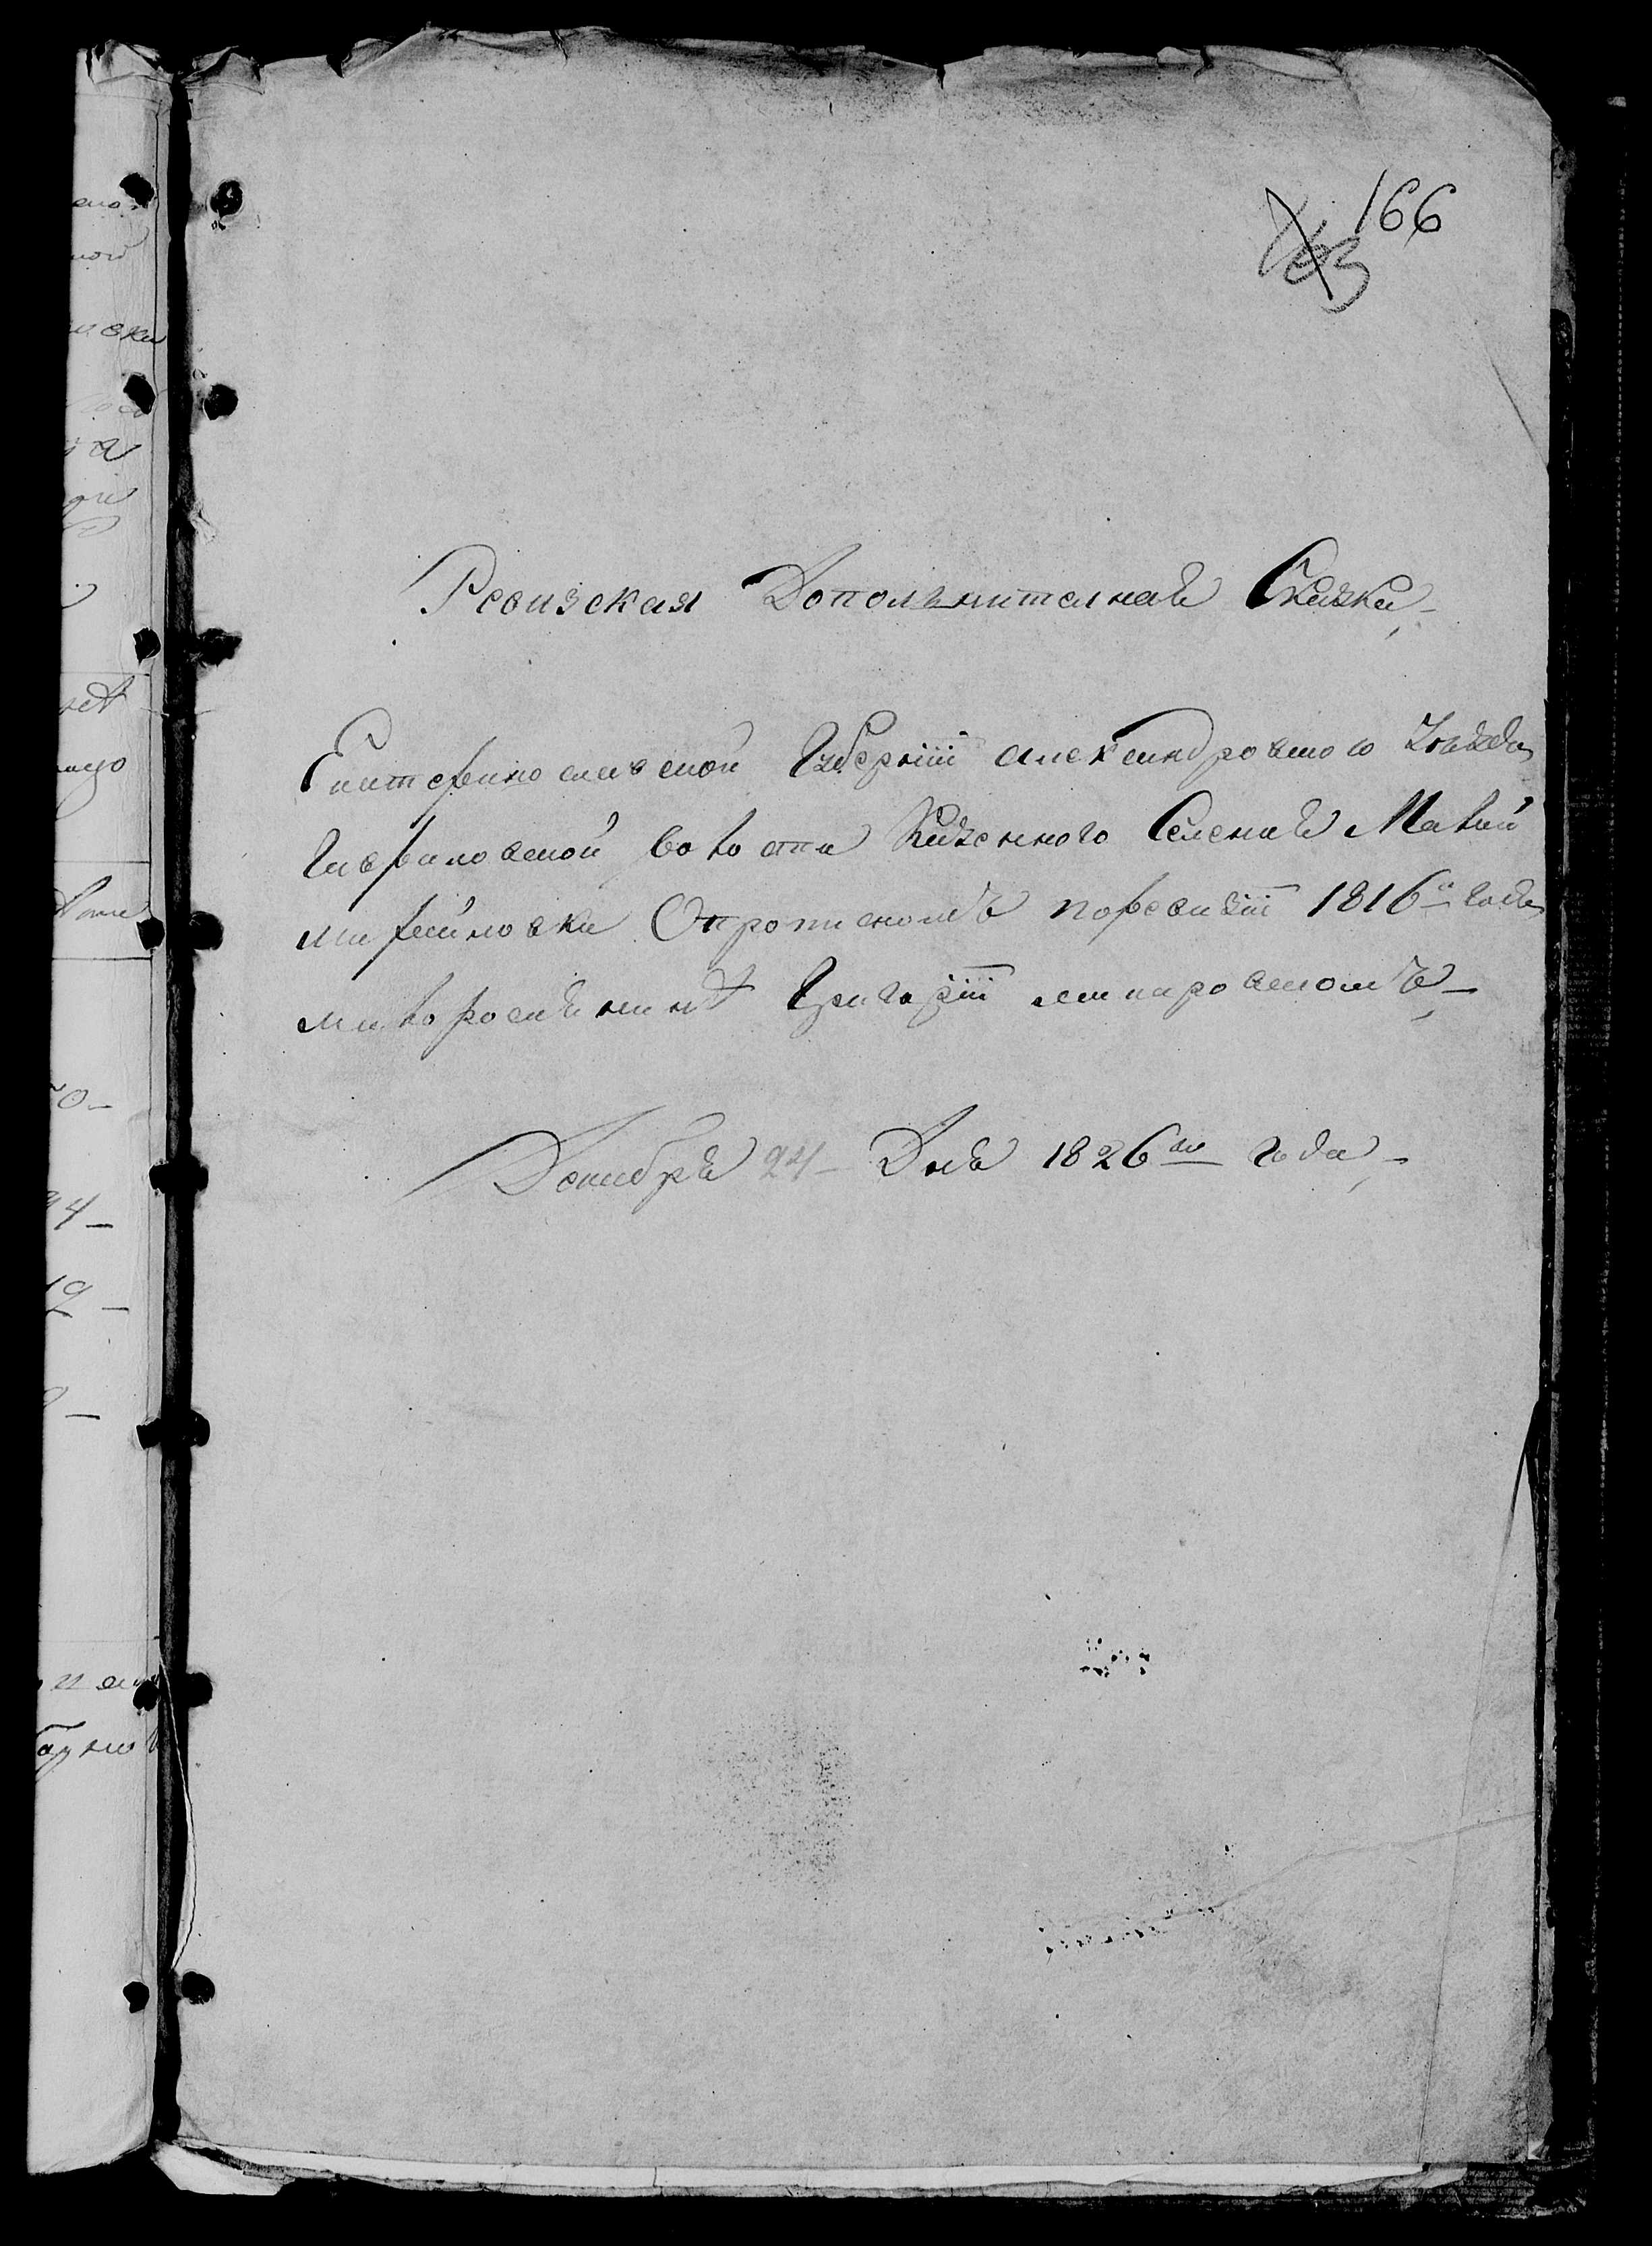 166
163
Ревизская Допольнителная Сказка,
Екатериnославской Губерніи Александровского Уезда
Гавриловской волости Казенного Селения Малой
Михайловки О прописномъ по ревизіи 1816го года
малоросиянине Григоріи
Декабря 24 Дня 1826го года,